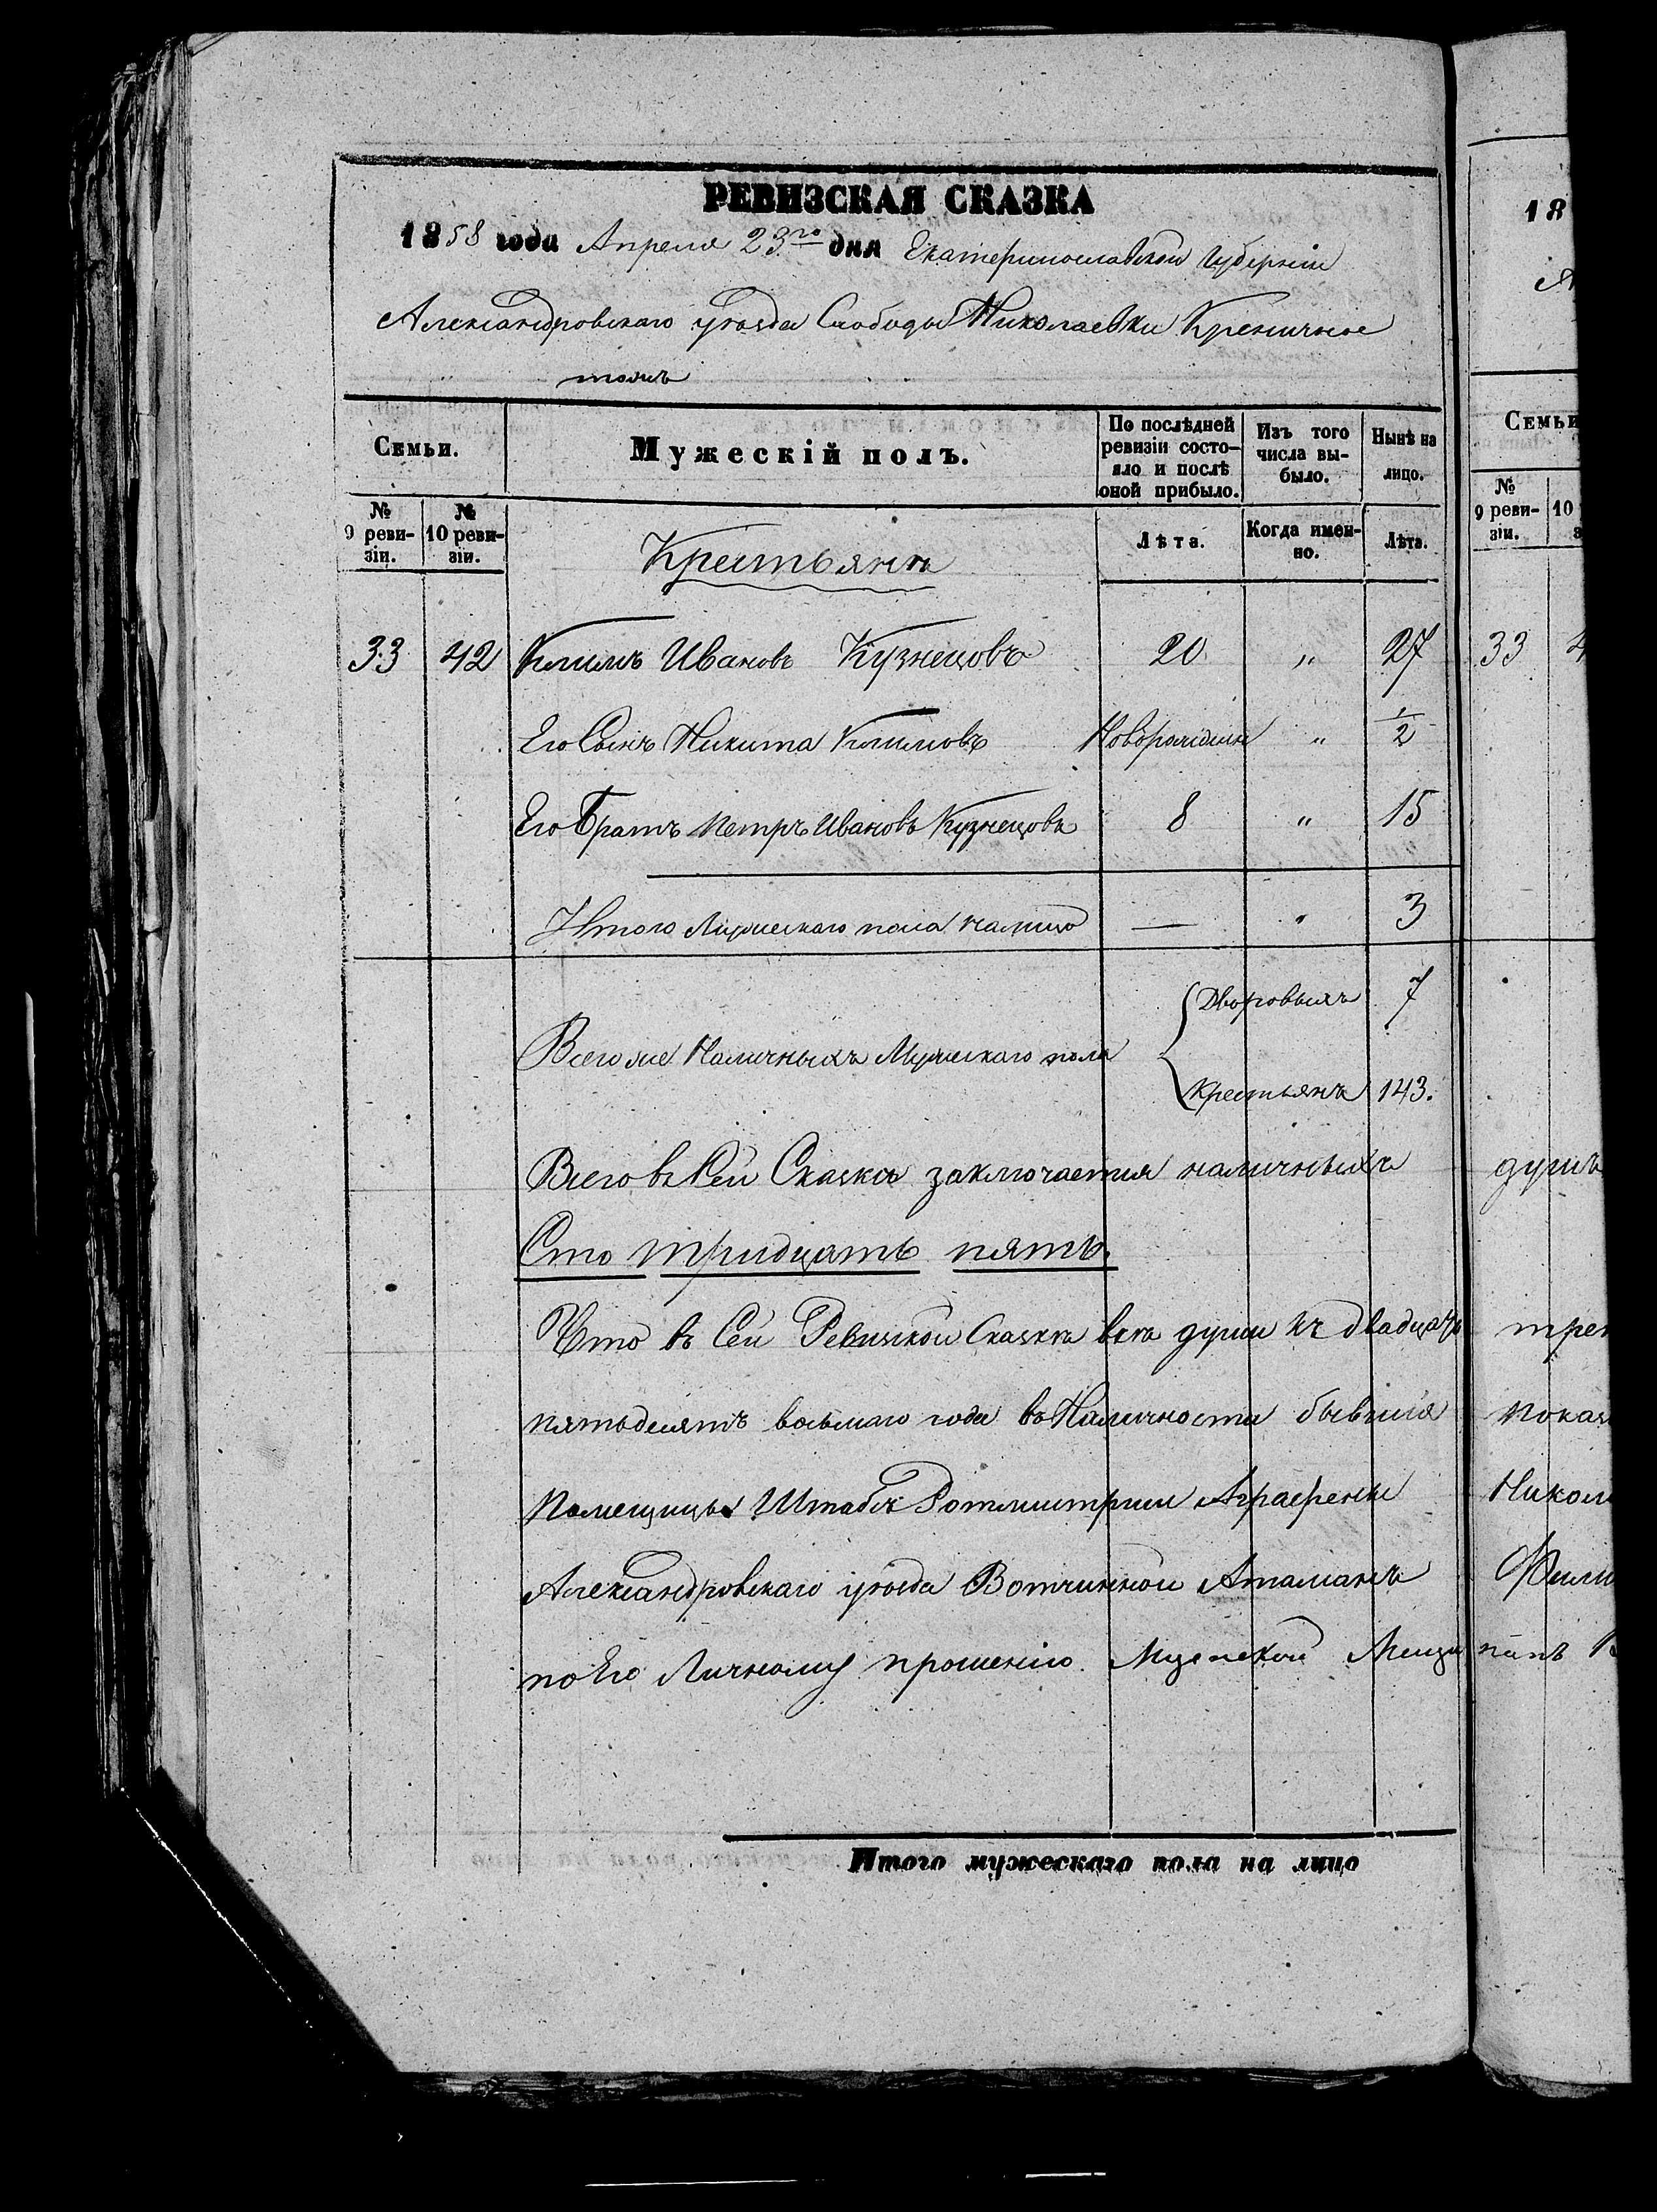 РЕВИЗСКАЯ СКАЗКА
1858 года Апреля 23го дня Екатеринославской Губерніи
Александровскаго уѣзда Слободы Николаевки Креничное
тожъ
Семьи.
Мужескій полъ.
По послѣдней ревизіи состояло и послѣ оной прибыло.
Изъ того числа выбыло.
Нынѣ на лицо.
№ 9 ревизіи.
№ 10 ревизіи.
Крестьянъ
Лѣта.
Когда именно.
Лѣта.
33 42 Климъ Ивановъ Кузнецовъ 20 " 27
Его Сынъ Никита Климовъ Новорожденъ " 1/2
Его Братъ Петръ Ивановъ Кузнецовъ 8 " 15
Итого Мужескаго пола налицо — " 3
Всего же Наличныхъ Мужескаго пола
Дворовыхъ 7
Крестьянъ 143.
Всего въ Сей Сказкѣ заключается наличныхъ
Сто тридцать пять.
Что въ Сей Ревизской Сказкѣ всѣ души къ двадцать
пятьдесятъ восьмаго года въ Наличности бывшія
Помещицы Штабсъ Ротмистрши Аграфены
Александровскаго уѣзда Вотчинной Атаманъ
по Его Личному прошенію Мещан
Итого мужескаго пола на лицо
18
Семьи
№ 9 ревизіи.
10
33 4
душъ
трет
показ
Никол
Фили